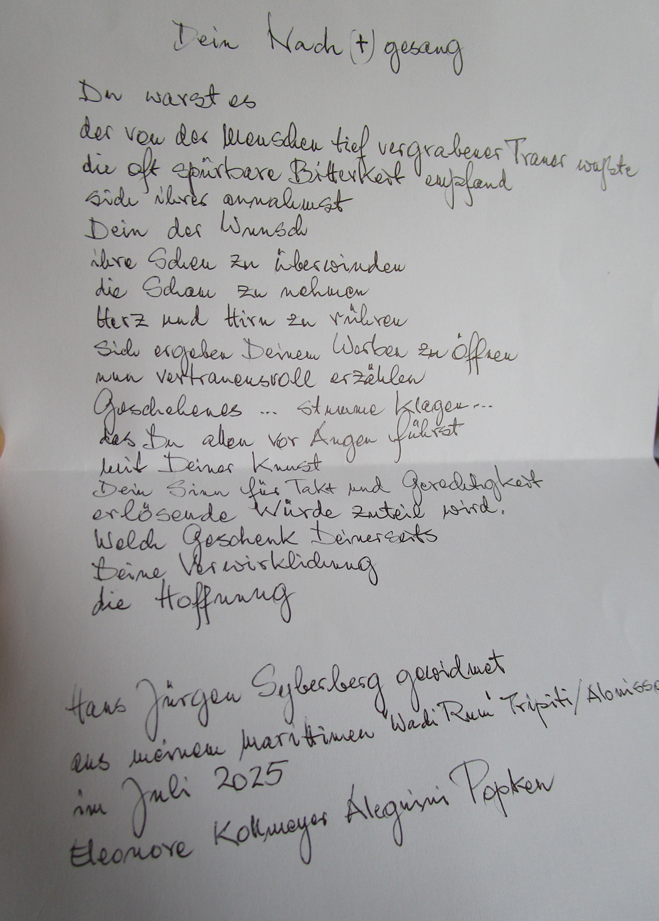 Dein Nach(t)gesang
Du warst es
der von der Menschen tief vergrabener Trauer wußte
die oft spürbare Bitterkeit empfand
sich ihrer annahmst
Dein der Wunsch
ihre Scheu zu überwinden
die Scham zu nehmen
Herz und Hirn zu rühren
sich ergeben Deinem Werben zu öffnen
nun vertrauensvoll erzählen
Geschehenes ... stumme Klagen...
das Du allen vor Augen führst
mit Deiner Kunst
Dein Sinn für Takt und Gerechtigkeit
erlösende Würde zuteil wird.
Welch Geschenk Deinerseits
Deine Verwirklichung
die Hoffnung
Hans Jürgen Syberberg gewidmet
aus meinem marittimen 'Wadi Rum' Tripiti/
im Juli 2025
Eleonore Kollmeyer Popken